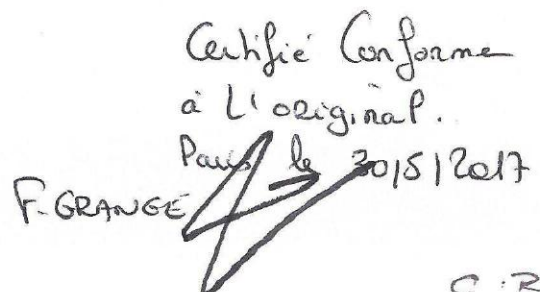 Certifié Conforme
à L'original.
Paris le 30/5/2017
F. GRANGE